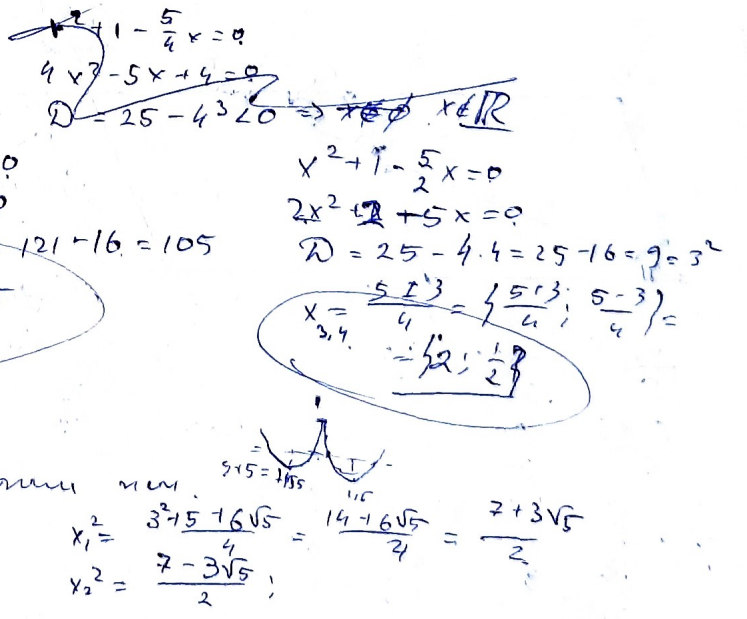 x² + 1 - 5/4 x = 0
4x² - 5x + 4 = 0
D = 25 - 4³ < 0 ⇒ x∉ℝ
x² + 1 - 5/2 x = 0
2x² + 2 + 5x = 0
121 - 16 = 105
D = 25 - 4·4 = 25 - 16 = 9 = 3²
x₃,₄ = (5 ± 3)/4 = {(5+3)/4; (5-3)/4} =
= {2; 1/2}
x₁² = (3² + 5 + 6√5)/4 = (14 + 6√5)/4 = (7 + 3√5)/2
x₂² = (7 - 3√5)/2;